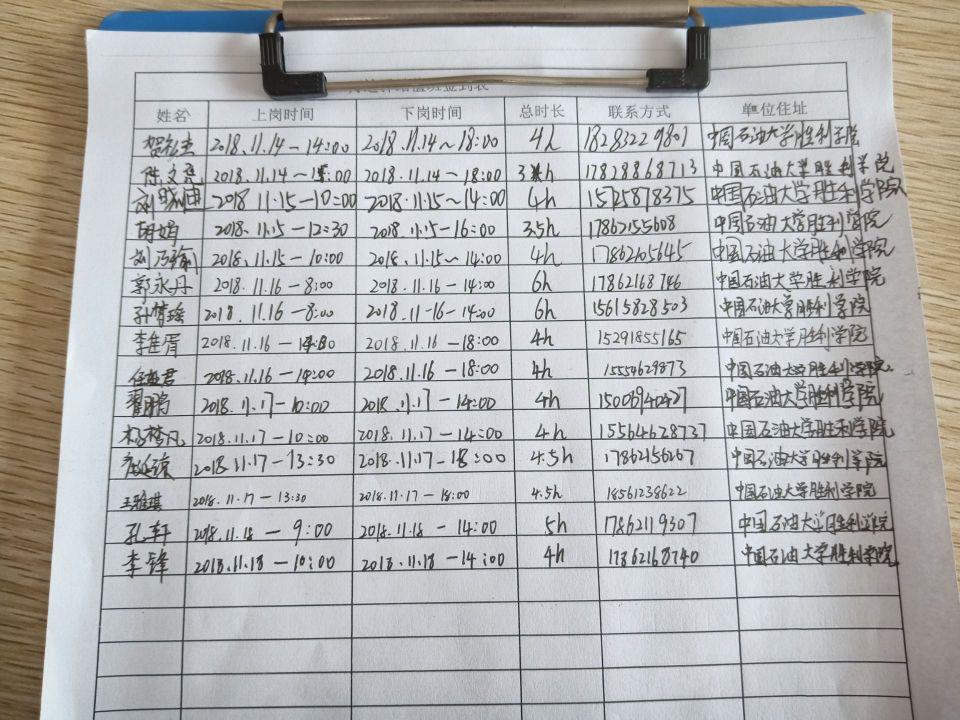 姓名 上岗时间 下岗时间 总时长 联系方式 单位住址
2018.11.14-14:00 2018.11.14~18:00 4h 18283229801 中国石油大学胜利学院
陈文亮 2018.11.14~15:00 2018.11.14-18:00 3h 17828868713 中国石油大学胜利学院
刘晓迪 2018 11.15-10:00 2018.11.15~14:00 4h 1525878375 中国石油大学胜利学院
胡嫣 2018.11.15-12:30 2018.11.15-16:00 3.5h 17862155608 中国石油大学胜利学院
刘乃瑜 2018.11.15-10:00 2018.11.15~14:00 4h 17862165645 中国石油大学胜利学院
郭永丹 2018.11.16-8:00 2018.11.16-14:00 6h 17862168746 中国石油大学胜利学院
孙梦瑶 2018.11.16-8:00 2018.11-16-14:00 6h 15615828503 中国石油大学胜利学院
李佳胥 2018.11.16- 2018.11.16-18:00 4h 15291855165 中国石油大学胜利学院
2018.11.16-14:00 2018.11.16-18:00 4h 15554629873 中国石油大学胜利学院
2018.11.17-10:00 2018.11.17-14:00 4h 15006940427 中国石油大学胜利学院
杨梦凡 2018.11.17-10:00 2018.11.17-14:00 4h 15564628737 中国石油大学胜利学院
2018.11.17-13:30 2018.11.17-18:00 4.5h 17862156267 中国石油大学胜利学院
王雅琪 2018.11.17-13:30 2018.11.17-18:00 4.5h 18561238622 中国石油大学胜利学院
孔轩 2018.11.18-9:00 2018.11.18-14:00 5h 17862119307 中国石油大学胜利学院
李锋 2018.11.18-10:00 2018.11.18-14:00 4h 17862168740 中国石油大学胜利学院